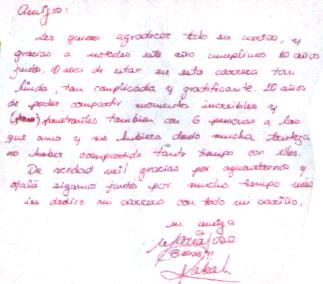 Amigos:
Les quiero agradecer todo su cariño, y
gracias a ustedes este año cumplimos 10 años
juntos, 10 años de estar en esta carrera tan
linda, tan complicada y gratificante. 10 años
de poder compartir momentos increíbles y
frustrantes también con 6 personas a las
que amo y me hubiera dado mucha tristeza
no haber compartido tanto tiempo con ellos.
De verdad mil gracias por aguantarnos y
ojalá sigamos juntos por mucho tiempo más
les dedico mi carrera con todo mi cariño.
su amiga
María José